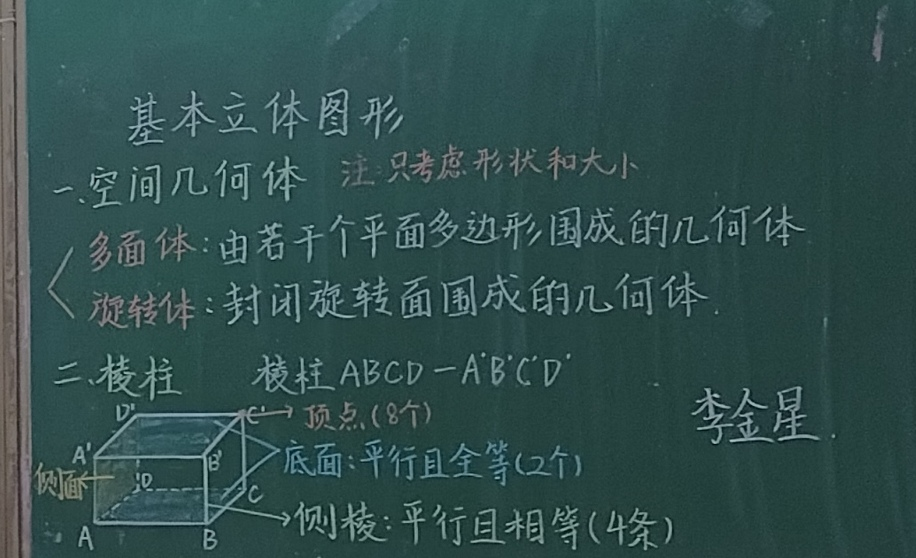 基本立体图形
一、空间几何体 注:只考虑形状和大小
多面体:由若干个平面多边形围成的几何体
旋转体:封闭旋转面围成的几何体.
二、棱柱 棱柱ABCD-A'B'C'D'
D' C' 顶点(8个)
李金星.
A' B' 底面:平行且全等(2个)
侧面 D C
侧棱:平行且相等(4条)
A B